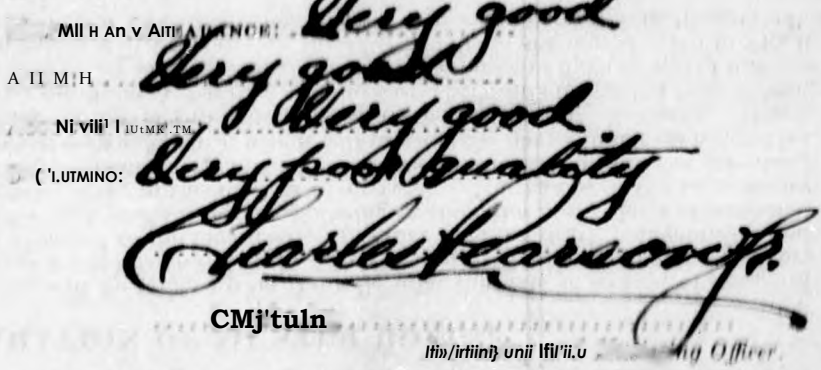 Mll H An v AITI▲DANCE: Very good
A II M H Very good
Ni vili¹ I IU1MK'.TM Very good
( 'I.UTMINO: Very poor quality
Charles Pearson Jr.
CMj'tuln
Iti»/irtiini} unii Ifil'ii.u Officer.